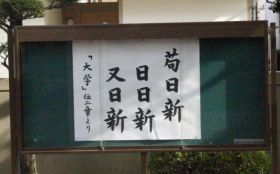 苟日新
日日新
又日新
「大学」伝二章より